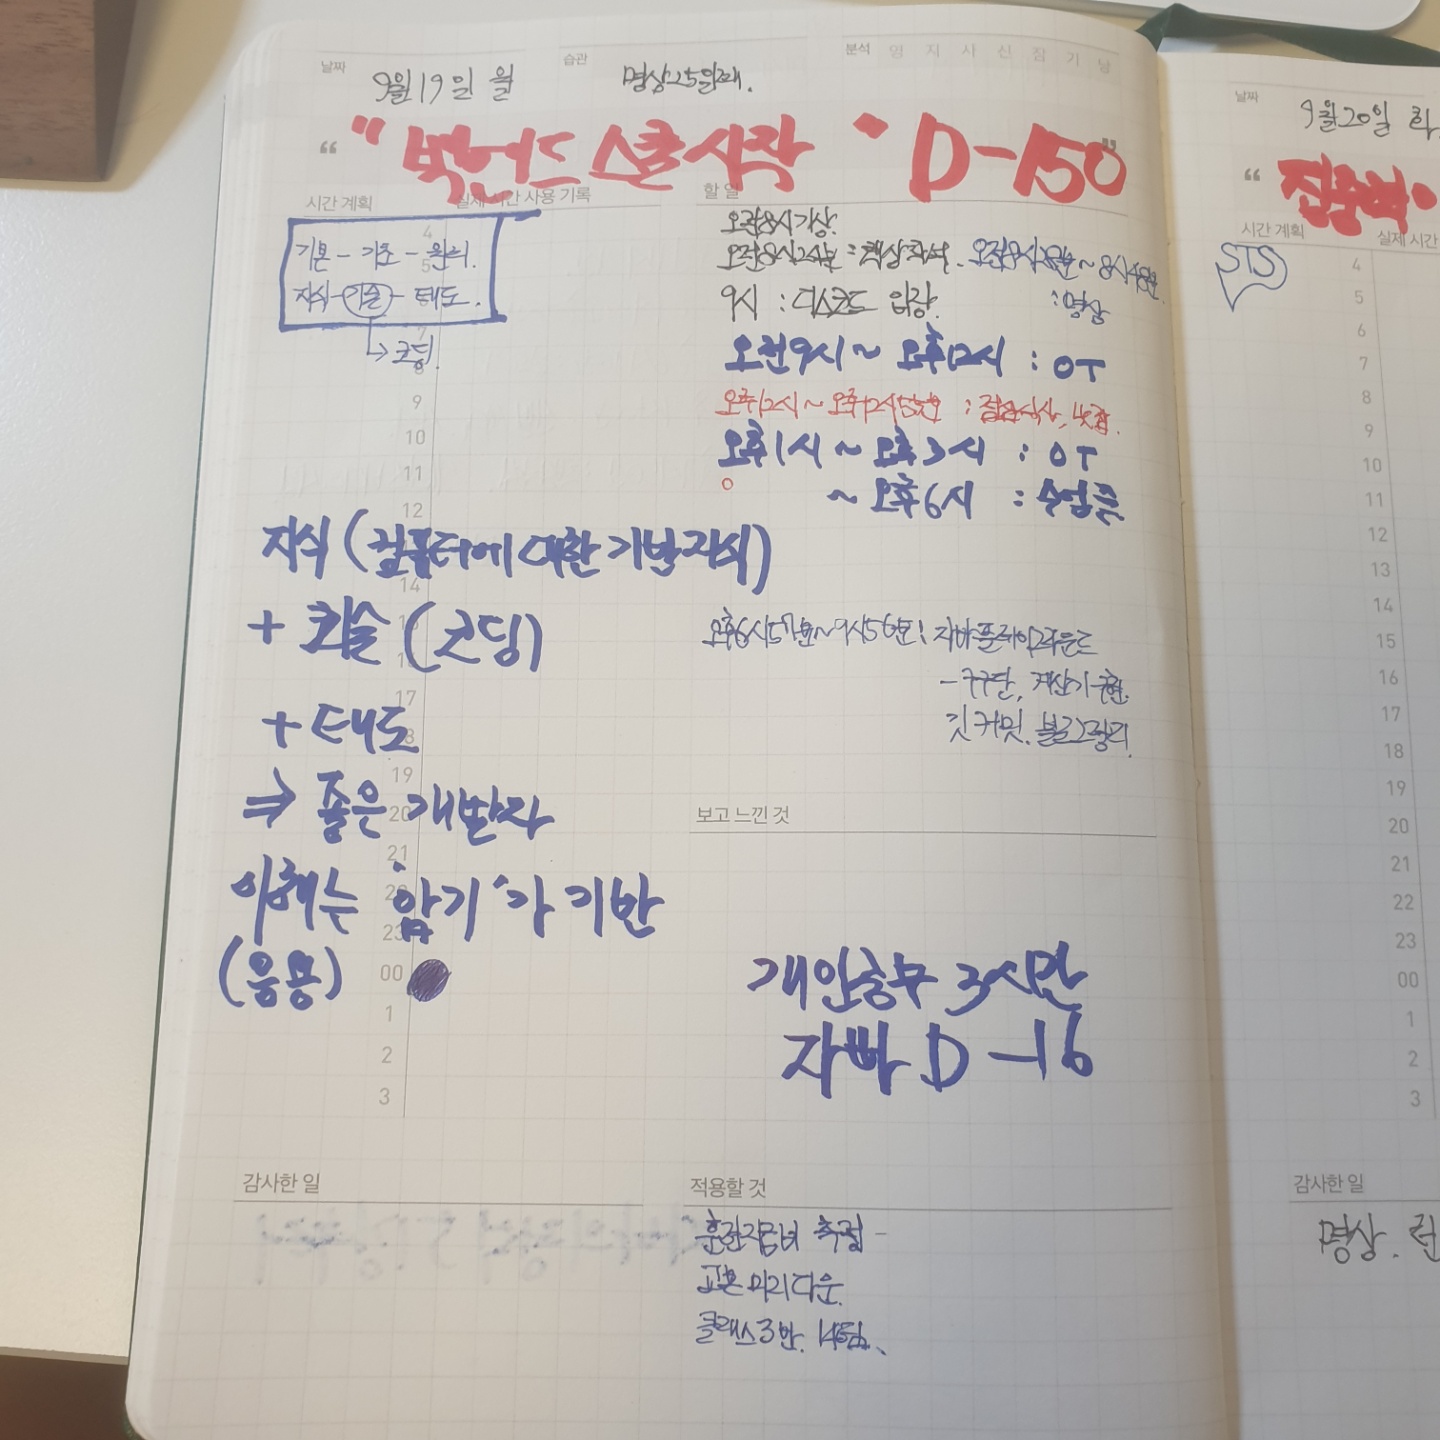 날짜 9월 19일 월 습관 명상25일째. 분석 영 지 사 신 잠 기 낭
“ "백엔드 스쿨 시작 " D-150 ”
시간 계획 실제 시간 사용 기록
기본 - 기초 - 원리.
지식 - 기술 - 태도.
→ 코딩.
4
5
7
8
9
10
11
12
14
17
18
19
20
21
22
23
00
1
2
3
지식 (컴퓨터에 대한 기반지식)
+ 기술 (코딩)
+ 태도
⇒ 좋은 개발자
이해는 '암기'가 기반
(응용)
할 일
오전8시기상.
오전8시24분 : 책상착석. 오전8시28분~8시48분
9시 : 디스코드 입장. : 명상
오전9시~ 오후12시 : OT
오후12시~ 오후12시55분 : 점심식사, 낮잠.
오후1시 ~ 오후3시 : OT
~ 오후6시 : 수업준
오후6시57분~9시56분: 자바플레이그라운드
- 구구단, 계산기구현.
깃 커밋. 블로그정리.
보고 느낀 것
개인공부 3시간
자바 D-16
감사한 일
적용할 것
훈련장려 -
교본 미리다운.
클래스3반. 14팀.
날짜 9월20일 화.
“ 집중력.
시간 계획 실제 시간
STS
4
5
6
7
8
9
10
11
12
13
14
15
16
17
18
19
20
21
22
23
00
1
2
3
감사한 일
명상. 런